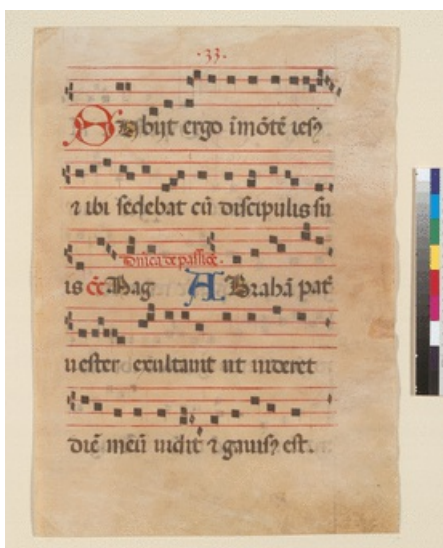 ·33·
Abijt ergo i mōtē iesꝰ
⁊ ibi sedebat cū discipulis su
is Mag
Dnica de passiōe.
ABrahā pat̄
uester exultauit ut uideret
diē meū uidit ⁊ gauisꝰ est.